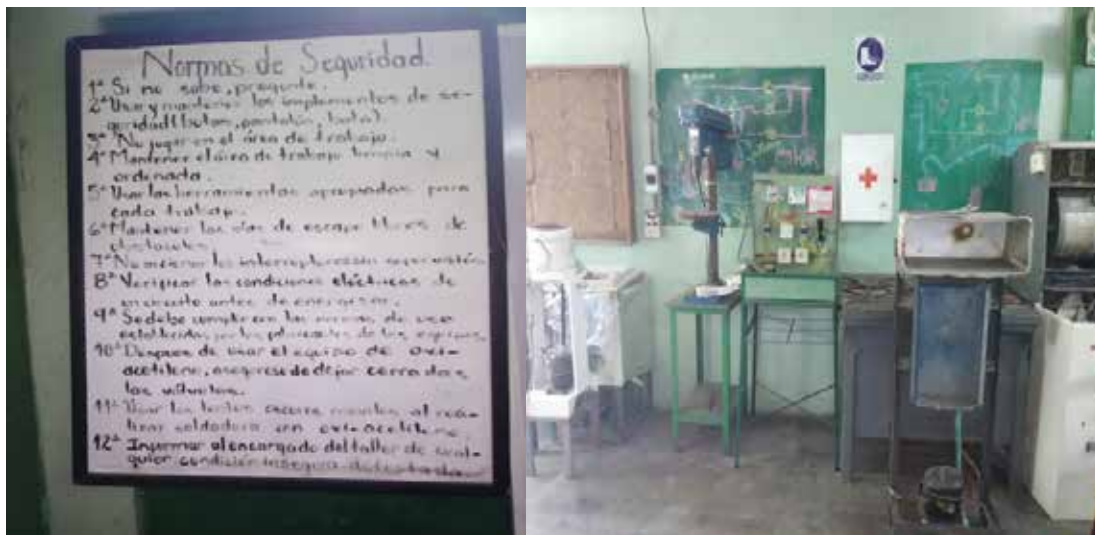 Normas de Seguridad.
1ª Si no sabe, pregunte.
2ª Usar y mantener los implementos de se-
guridad (botas, pantalón, bata).
3ª No jugar en el área de trabajo.
4ª Mantener el área de trabajo limpia y
ordenada.
5ª Usar las herramientas apropiadas para
cada trabajo.
6ª Mantener las vías de escape libres de
obstaculos.
7ª No accionar los interruptores sin
8ª Verificar las condiciones eléctricas de
un circuito antes de energizar.
9ª Se debe cumplir con las normas de uso
establecidas por los de los equipos.
10ª Despues de usar el equipo de oxi-
acetileno, asegurese de dejar cerradas
las válvulas.
11ª Usar los lentes oscuros al rea-
lizar soldadura con oxi-acetileno.
12ª Informar al encargado del taller de cual-
quier condición insegura detectada.